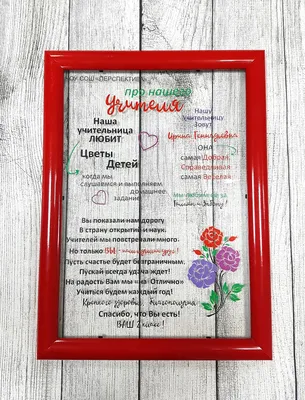 ОУ СОШ «ПЕРСПЕКТИВ
про нашего
Учителя
Наша
учительница
ЛЮБИТ
Цветы
Детей
когда мы
слушаемся и выполняем
домашнее
задание
Нашу
Учительницу
Зовут
Ирина Геннадьевна
ОНА
самая Добрая
Справедливая
самая Веселая
Мы любим ее за
Вы показали нам дорогу
В страну открытий и наук.
Учителей мы повстречали много.
Но только ВЫ -
Пусть счастье будет безграничным.
Пускай всегда удача ждет!
На радость Вам мы «на Отлично»
Учиться будем каждый год!
Крепкого здоровья, благополучия
Спасибо, что Вы есть!
ВАШ 2 класс!